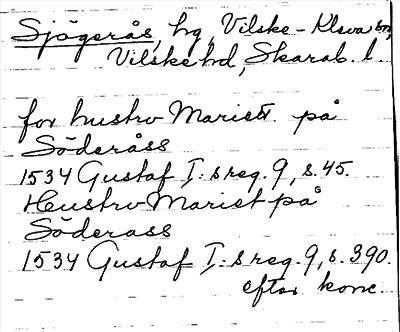 Sjögerås, hg, Vilske-Kleva sn,
Vilske hd, Skarab. l.
for hustro Mariett på
Söderåss
1534 Gustaf I:s reg. 9, s. 45.
Heustro Mariet på
Söderass
1534 Gustaf I:s reg. 9, s. 390.
efter konc.